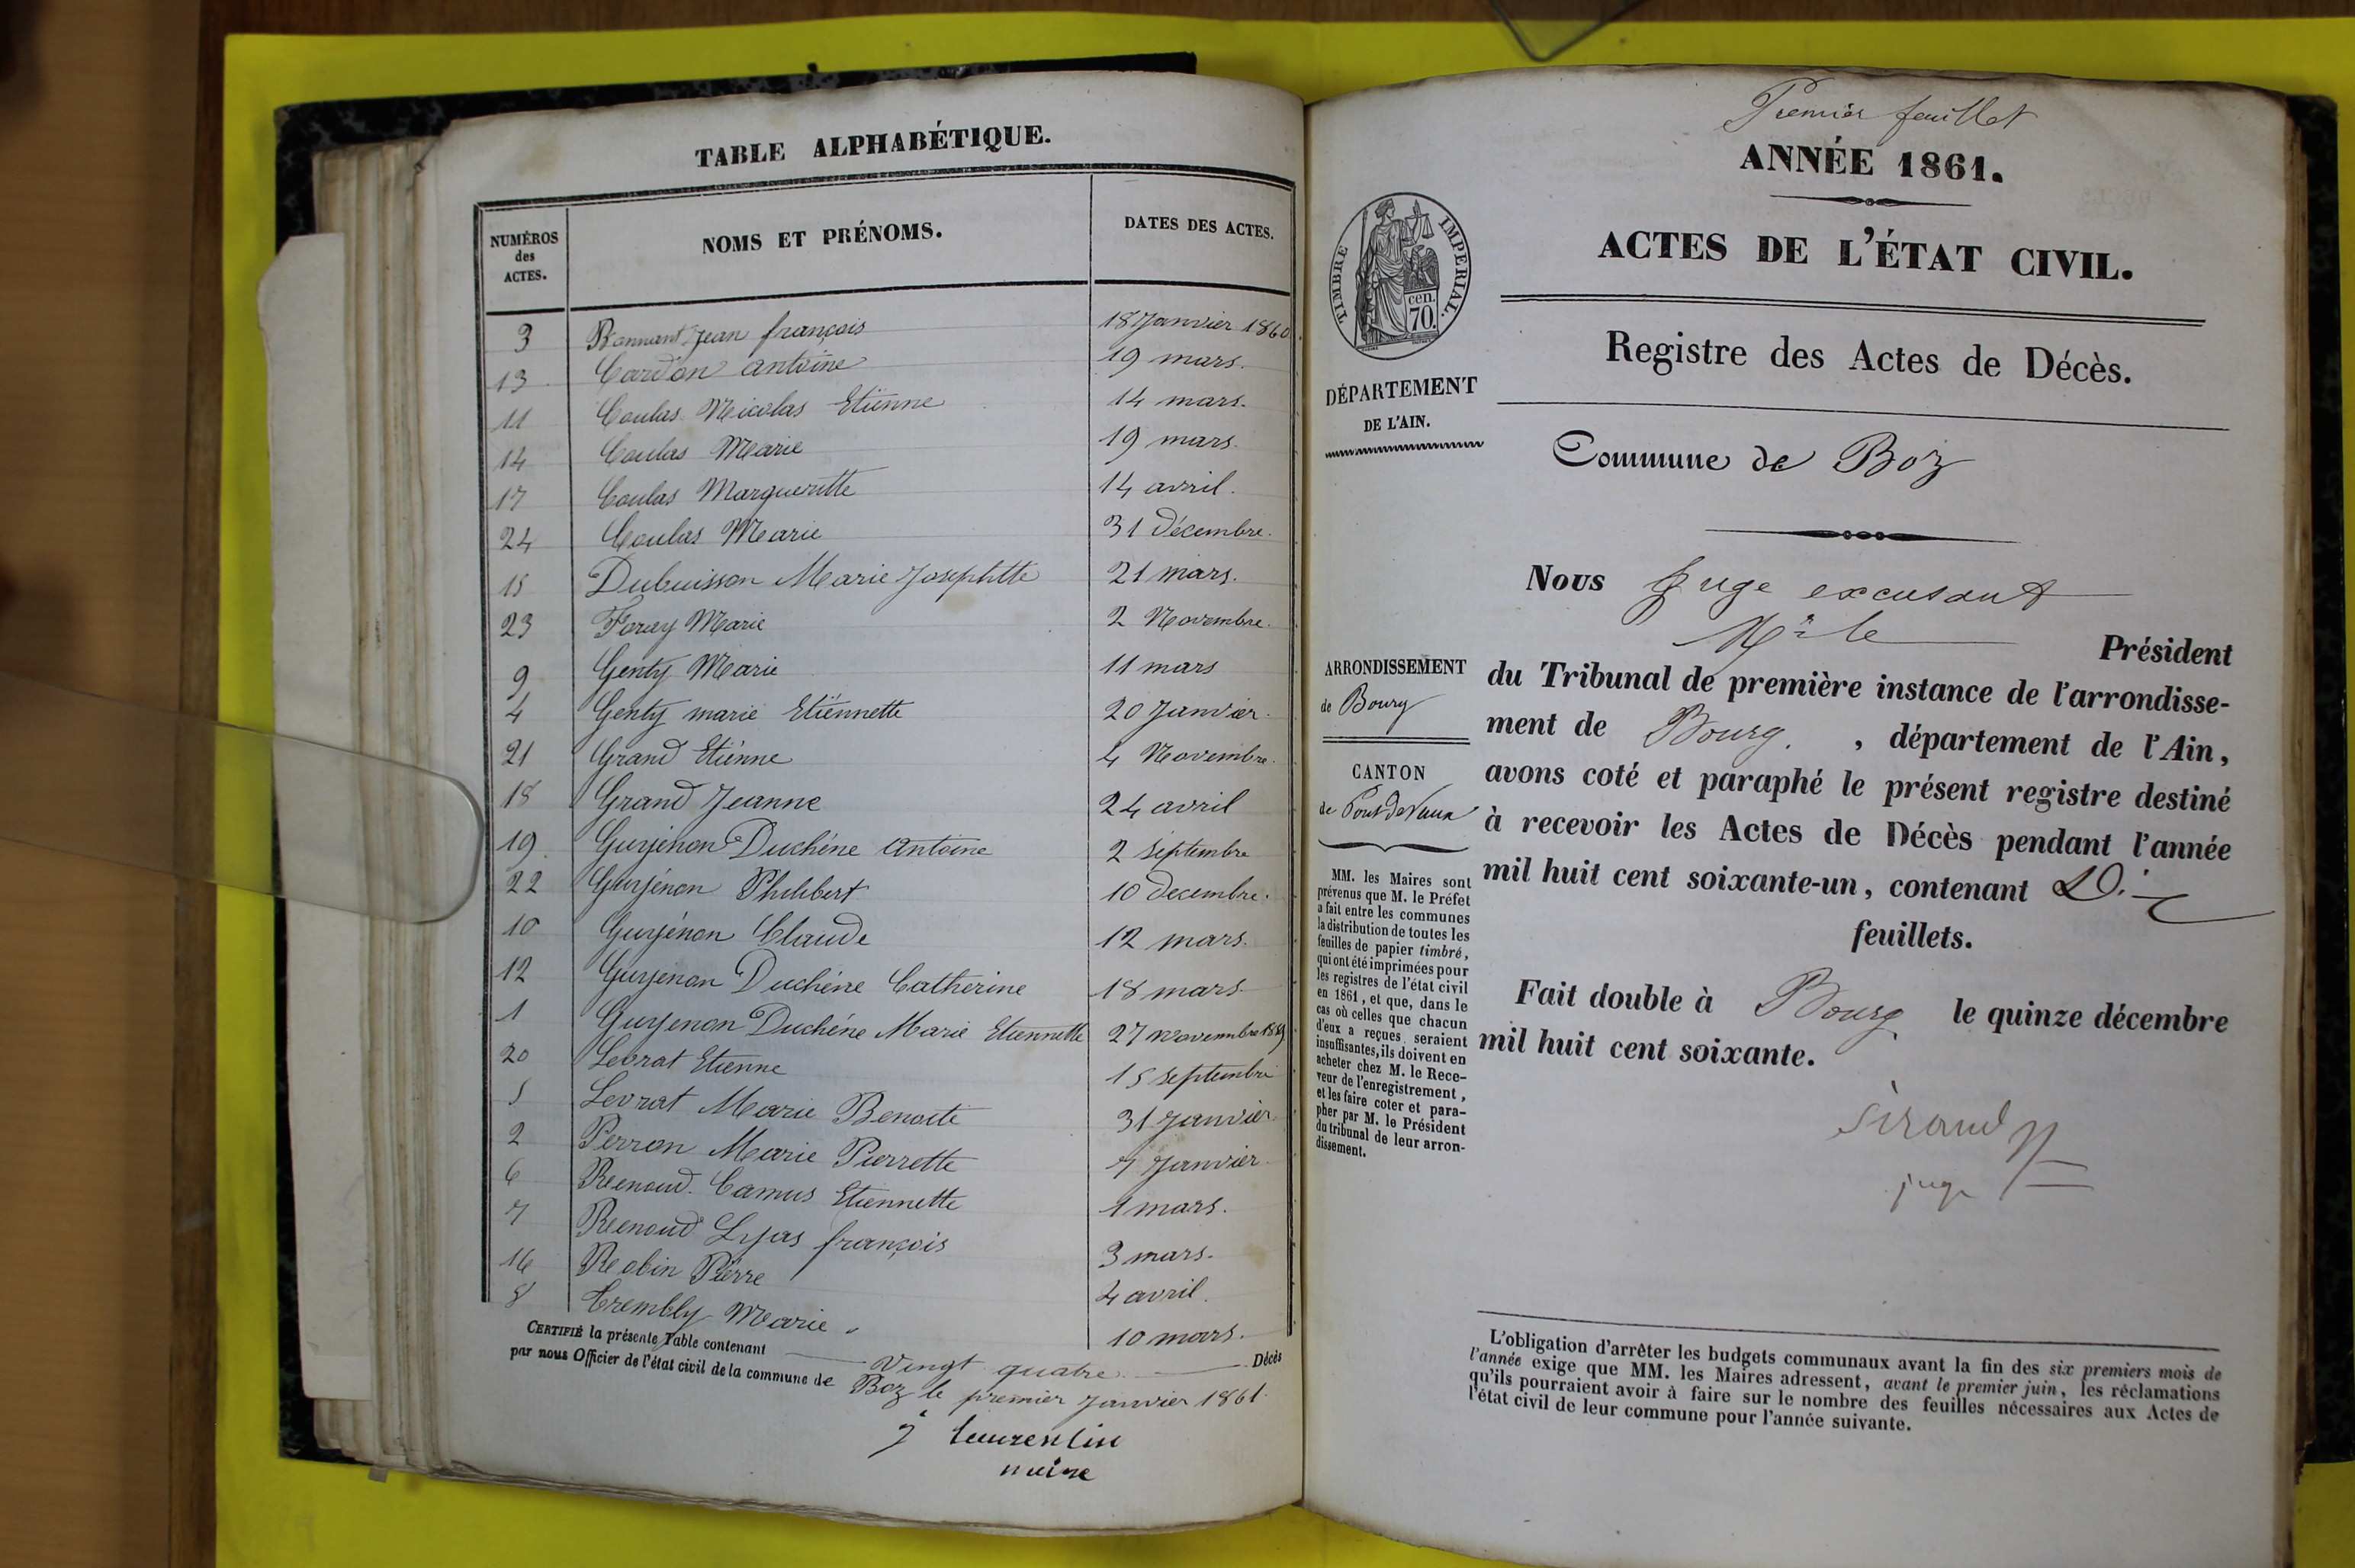 TABLE ALPHABÉTIQUE.
NUMÉROS des ACTES. NOMS ET PRÉNOMS. DATES DES ACTES.
3 Bonnant Jean françois 18 Janvier 1860
13 Cardon antoine 19 mars.
11 Coulas Nicolas Etiénne 14 mars.
14 Coulas Marie 19 mars.
17 Coulas Margueritte 14 avril.
24 Coulas Marie 31 Décembre.
15 Dubuisson Marie Josephtte 21 mars.
23 Foray Marie 2 Novembre.
9 Genty Marie 11 mars
4 Genty marie Etiénnette 20 Janvier.
21 Grand Etiénne 4 Novembre.
18 Grand Jeanne 24 avril
19 Gurjenon Duchéne antoine 2 septembre
22 Gurjénon Philibert 10 decembre.
10 Gurjénon Claude 12 mars.
12 Gurjenon Duchéne Catherine 18 mars
1 Gurjenon Duchéne Marie Etiennette 27 novembre 1859
20 Levrat Etienne 15 septembre
5 Levrat Marie Benoite 31 Janvier
2 Perron Marie Pierrette 7 Janvier
6 Renoud. Camus Etiennette 1 mars.
7 Renoud Lyas françois 3 mars.
16 Robin Pierre 4 avril.
8 Trembly Marie. 10 mars.
CERTIFIÉ la présente Table contenant Vingt quatre Décès
par nous Officier de l'état civil de la commune de Boz le premier Janvier 1861.
j Laurentin
maire
Premier feuillet
ANNÉE 1861.
ACTES DE L'ÉTAT CIVIL.
TIMBRE IMPERIAL.
cen.
70.
Registre des Actes de Décès.
DÉPARTEMENT
DE L'AIN.
Commune de Boz
Nous Juge excusant
Mr le Président
ARRONDISSEMENT
de Bourg
du Tribunal de première instance de l'arrondisse-
ment de Bourg. , département de l'Ain,
CANTON
de Pont de Vaux
avons coté et paraphé le présent registre destiné
à recevoir les Actes de Décès pendant l'année
mil huit cent soixante-un, contenant Dix
feuillets.
Fait double à Bourg le quinze décembre
mil huit cent soixante.
Sirand
juge
MM. les Maires sont
prévenus que M. le Préfet
a fait entre les communes
la distribution de toutes les
feuilles de papier timbré,
qui ont été imprimées pour
les registres de l'état civil
en 1861, et que, dans le
cas où celles que chacun
d'eux a reçues seraient
insuffisantes, ils doivent en
acheter chez M. le Rece-
veur de l'enregistrement,
et les faire coter et para-
pher par M. le Président
du tribunal de leur arron-
dissement.
L'obligation d'arrêter les budgets communaux avant la fin des six premiers mois de
l'année exige que MM. les Maires adressent, avant le premier juin, les réclamations
qu'ils pourraient avoir à faire sur le nombre des feuilles nécessaires aux Actes de
l'état civil de leur commune pour l'année suivante.